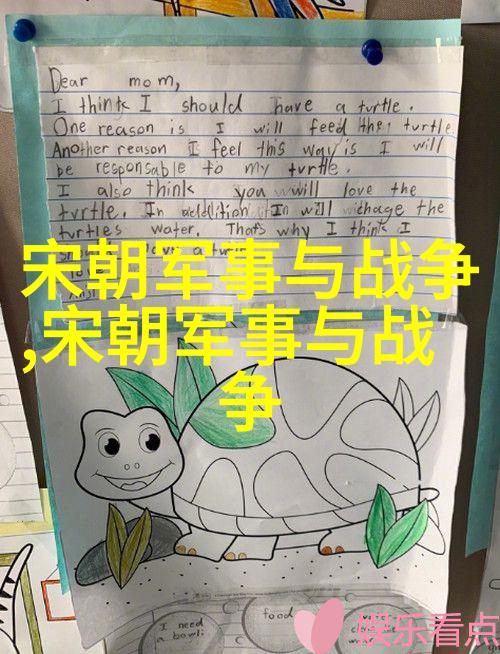 Dear mom,
I think I should have a turtle.
One reason is I will feed the turtle
Another reason I feel this way is I will
be responsable to my turtle.
I also think you will love the
turtle. In addition I will chage the
turtles water. Thats why I think I
a
宋朝军事与战争
,宋朝军事与战
争
I need
a bowl
food
娱乐看点